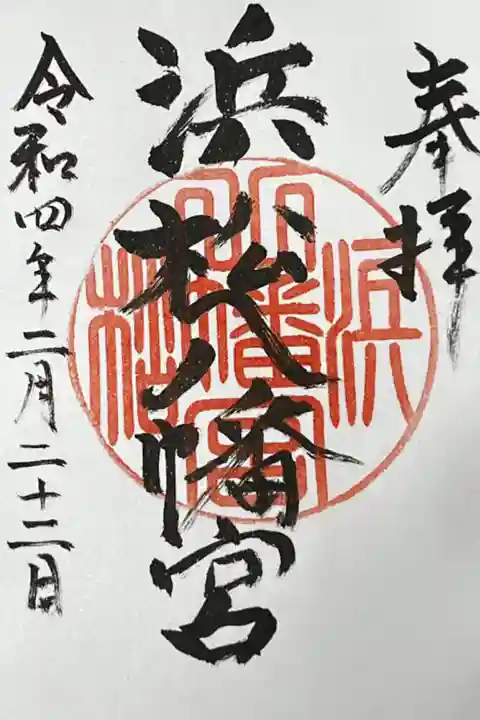 奉拝
浜松八幡宮
浜松八幡宮
令和四年二月二十二日